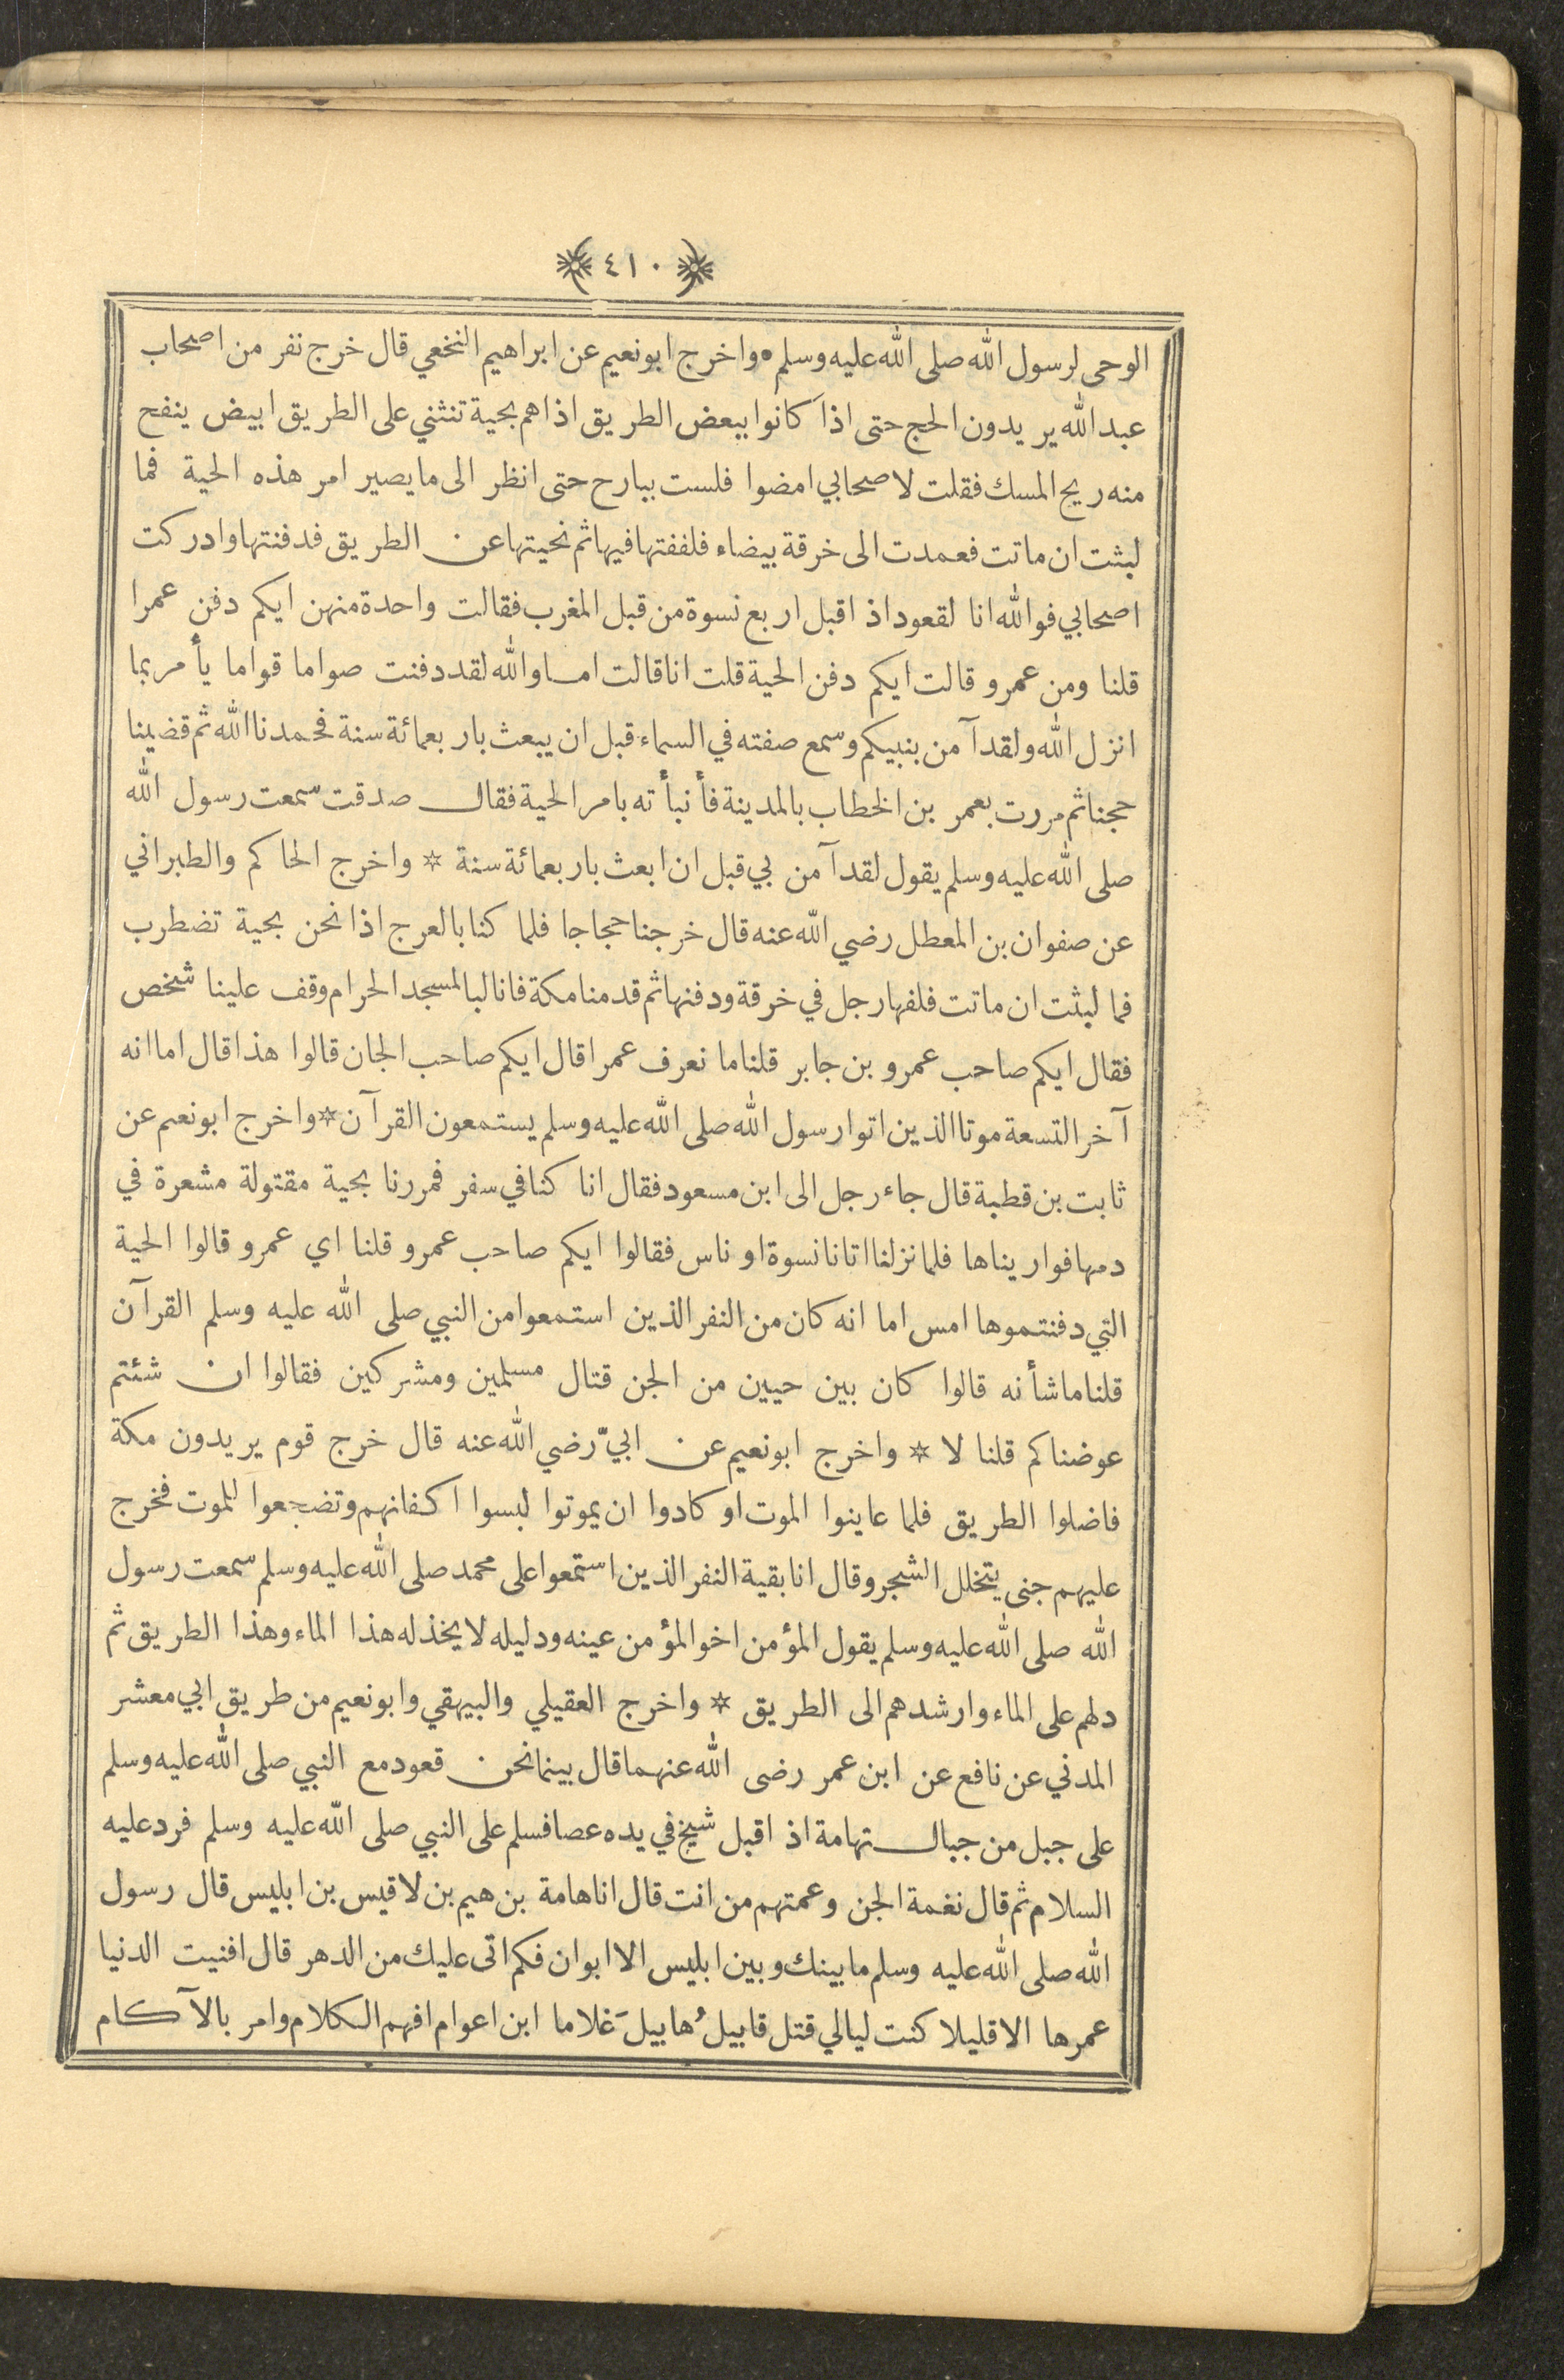 ﴿ ٤١٠ ﴾
الوحى لرسول الله صلى الله عليه وسلم • واخرج ابونعيم عن ابراهيم النخعي قال خرج نفر من اصحاب
عبد الله يريدون الحج حتى اذا كانوا ببعض الطريق اذاهم بحية تنثني على الطريق ابيض ينفح
منه ريح المسك فقلت لاصحابي امضوا فلست ببارح حتى انظر الى ما يصير امر هذه الحية فما
لبثت ان ماتت فعمدت الى خرقة بيضاء فلففتها فيها ثم نحيتها عن الطريق فدفنتها وادركت
اصحابي فوالله انا لقعود اذ اقبل اربع نسوة من قبل المغرب فقالت واحدة منهن ايكم دفن عمرا
قلنا ومن عمرو قالت ايكم دفن الحية قلت انا قالت اما والله لقد دفنت صواما قواما يأمر بما
انزل الله ولقد آمن بنبيكم وسمع صفته في السماء قبل ان يبعث باربعمائة سنة فحمدنا الله ثم قضينا
حجنا ثم مررت بعمر بن الخطاب بالمدينة فأنبأته بامر الحية فقال صدقت سمعت رسول الله
صلى الله عليه وسلم يقول لقد آمن بي قبل ان ابعث باربعمائة سنة * واخرج الحاكم والطبراني
عن صفوان بن المعطل رضي الله عنه قال خرجنا حجاجا فلما كنا بالعرج اذا نحن بحية تضطرب
فما لبثت ان ماتت فلفها رجل في خرقة ودفنها ثم قدمنا مكة فانا لبالمسجد الحرام وقف علينا شخص
فقال ايكم صاحب عمرو بن جابر قلنا ما نعرف عمرا قال ايكم صاحب الجان قالوا هذا قال اما انه
آخر التسعة موتا الذين اتوا رسول الله صلى الله عليه وسلم يستمعون القرآن * واخرج ابونعيم عن
ثابت بن قطبة قال جاء رجل الى ابن مسعود فقال انا كنا في سفر فمررنا بحية مقتولة مشعرة في
دمها فواريناها فلما نزلنا اتانا نسوة او ناس فقالوا ايكم صاحب عمرو قلنا اي عمرو قالوا الحية
التي دفنتموها امس اما انه كان من النفر الذين استمعوا من النبي صلى الله عليه وسلم القرآن
قلنا ما شأنه قالوا كان بين حيين من الجن قتال مسلمين ومشركين فقالوا ان شئتم
عوضناكم قلنا لا * واخرج ابونعيم عن ابيّ رضي الله عنه قال خرج قوم يريدون مكة
فاضلوا الطريق فلما عاينوا الموت او كادوا ان يموتوا لبسوا اكفانهم وتضجعوا للموت فخرج
عليهم جنى يتخلل الشجر وقال انا بقية النفر الذين استمعوا على محمد صلى الله عليه وسلم سمعت رسول
الله صلى الله عليه وسلم يقول المؤمن اخو المؤمن عينه ودليله لا يخذله هذا الماء وهذا الطريق ثم
دلهم على الماء وارشدهم الى الطريق * واخرج العقيلي والبيهقي وابونعيم من طريق ابي معشر
المدني عن نافع عن ابن عمر رضى الله عنهما قال بينما نحن قعود مع النبي صلى الله عليه وسلم
على جبل من جبال تهامة اذ اقبل شيخ في يده عصا فسلم على النبي صلى الله عليه وسلم فرد عليه
السلام ثم قال نغمة الجن وعمتهم من انت قال انا هامة بن هيم بن لاقيس بن ابليس قال رسول
الله صلى الله عليه وسلم ما بينك وبين ابليس الا ابوان فكم اتى عليك من الدهر قال افنيت الدنيا
عمرها الا قليلا كنت ليالي قتل قابيلُ هابيلَ غلاما ابن اعوام افهم الكلام وامر بالآكام